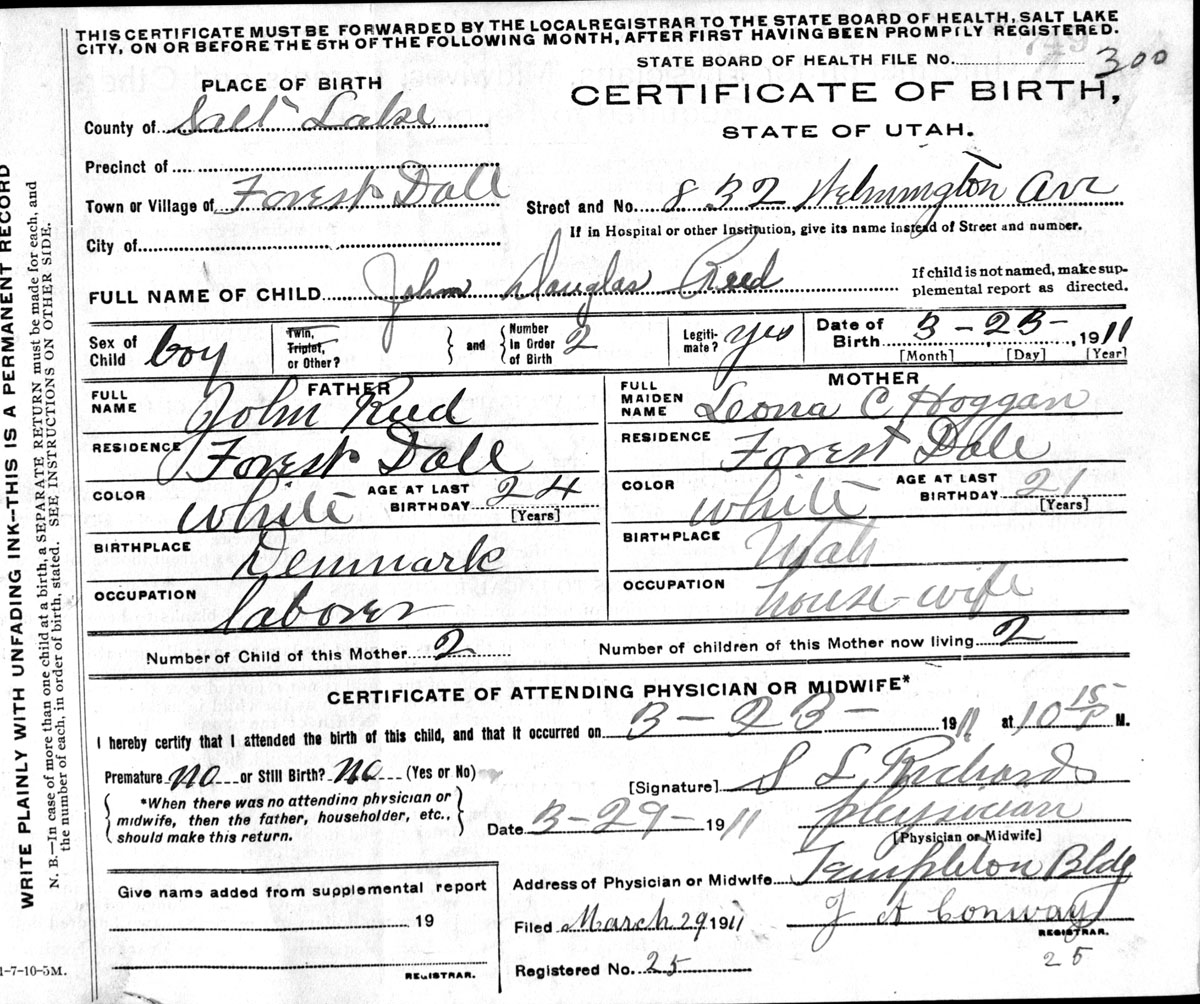 THIS CERTIFICATE MUST BE FORWARDED BY THE LOCAL REGISTRAR TO THE STATE BOARD OF HEALTH, SALT LAKE
CITY, ON OR BEFORE THE 5TH OF THE FOLLOWING MONTH, AFTER FIRST HAVING BEEN PROMPTLY REGISTERED.
STATE BOARD OF HEALTH FILE No. 300
PLACE OF BIRTH
CERTIFICATE OF BIRTH,
STATE OF UTAH.
County of Salt Lake
Precinct of
Town or Village of Forest Dall
Street and No. 832 Wilmington Ave
City of
If in Hospital or other Institution, give its name instead of Street and number.
FULL NAME OF CHILD John Douglas Reed
If child is not named, make sup-
plemental report as directed.
Sex of Child boy
Twin, Triplet, or Other?
and
Number In Order of Birth 2
Legiti-mate? yes
Date of Birth 3-23-, 1911
[Month] [Day] [Year]
FATHER
FULL NAME John Reed
RESIDENCE Forest Dall
COLOR white AGE AT LAST BIRTHDAY 24
[Years]
BIRTHPLACE Denmark
OCCUPATION laborer
MOTHER
FULL MAIDEN NAME Leona C Hoggan
RESIDENCE Forest Dall
COLOR white AGE AT LAST BIRTHDAY 21
[Years]
BIRTHPLACE Utah
OCCUPATION house-wife
Number of Child of this Mother 2
Number of children of this Mother now living 2
CERTIFICATE OF ATTENDING PHYSICIAN OR MIDWIFE*
I hereby certify that I attended the birth of this child, and that it occurred on 3-23- 1911 at 10 15 P M.
Premature no or Still Birth? no (Yes or No)
[Signature] S L Richards
*When there was no attending physician or
midwife, then the father, householder, etc.,
should make this return.
Date 3-29- 1911
physician
[Physician or Midwife]
Give name added from supplemental report
19
REGISTRAR.
Address of Physician or Midwife Templeton Bldg
Filed March 29 1911
J A Conway
REGISTRAR.
Registered No. 25
25
1-7-10-5M.
WRITE PLAINLY WITH UNFADING INK—THIS IS A PERMANENT RECORD
N. B.—In case of more than one child at a birth, a SEPARATE RETURN must be made for each, and
the number of each, in order of birth, stated. SEE INSTRUCTIONS ON OTHER SIDE.